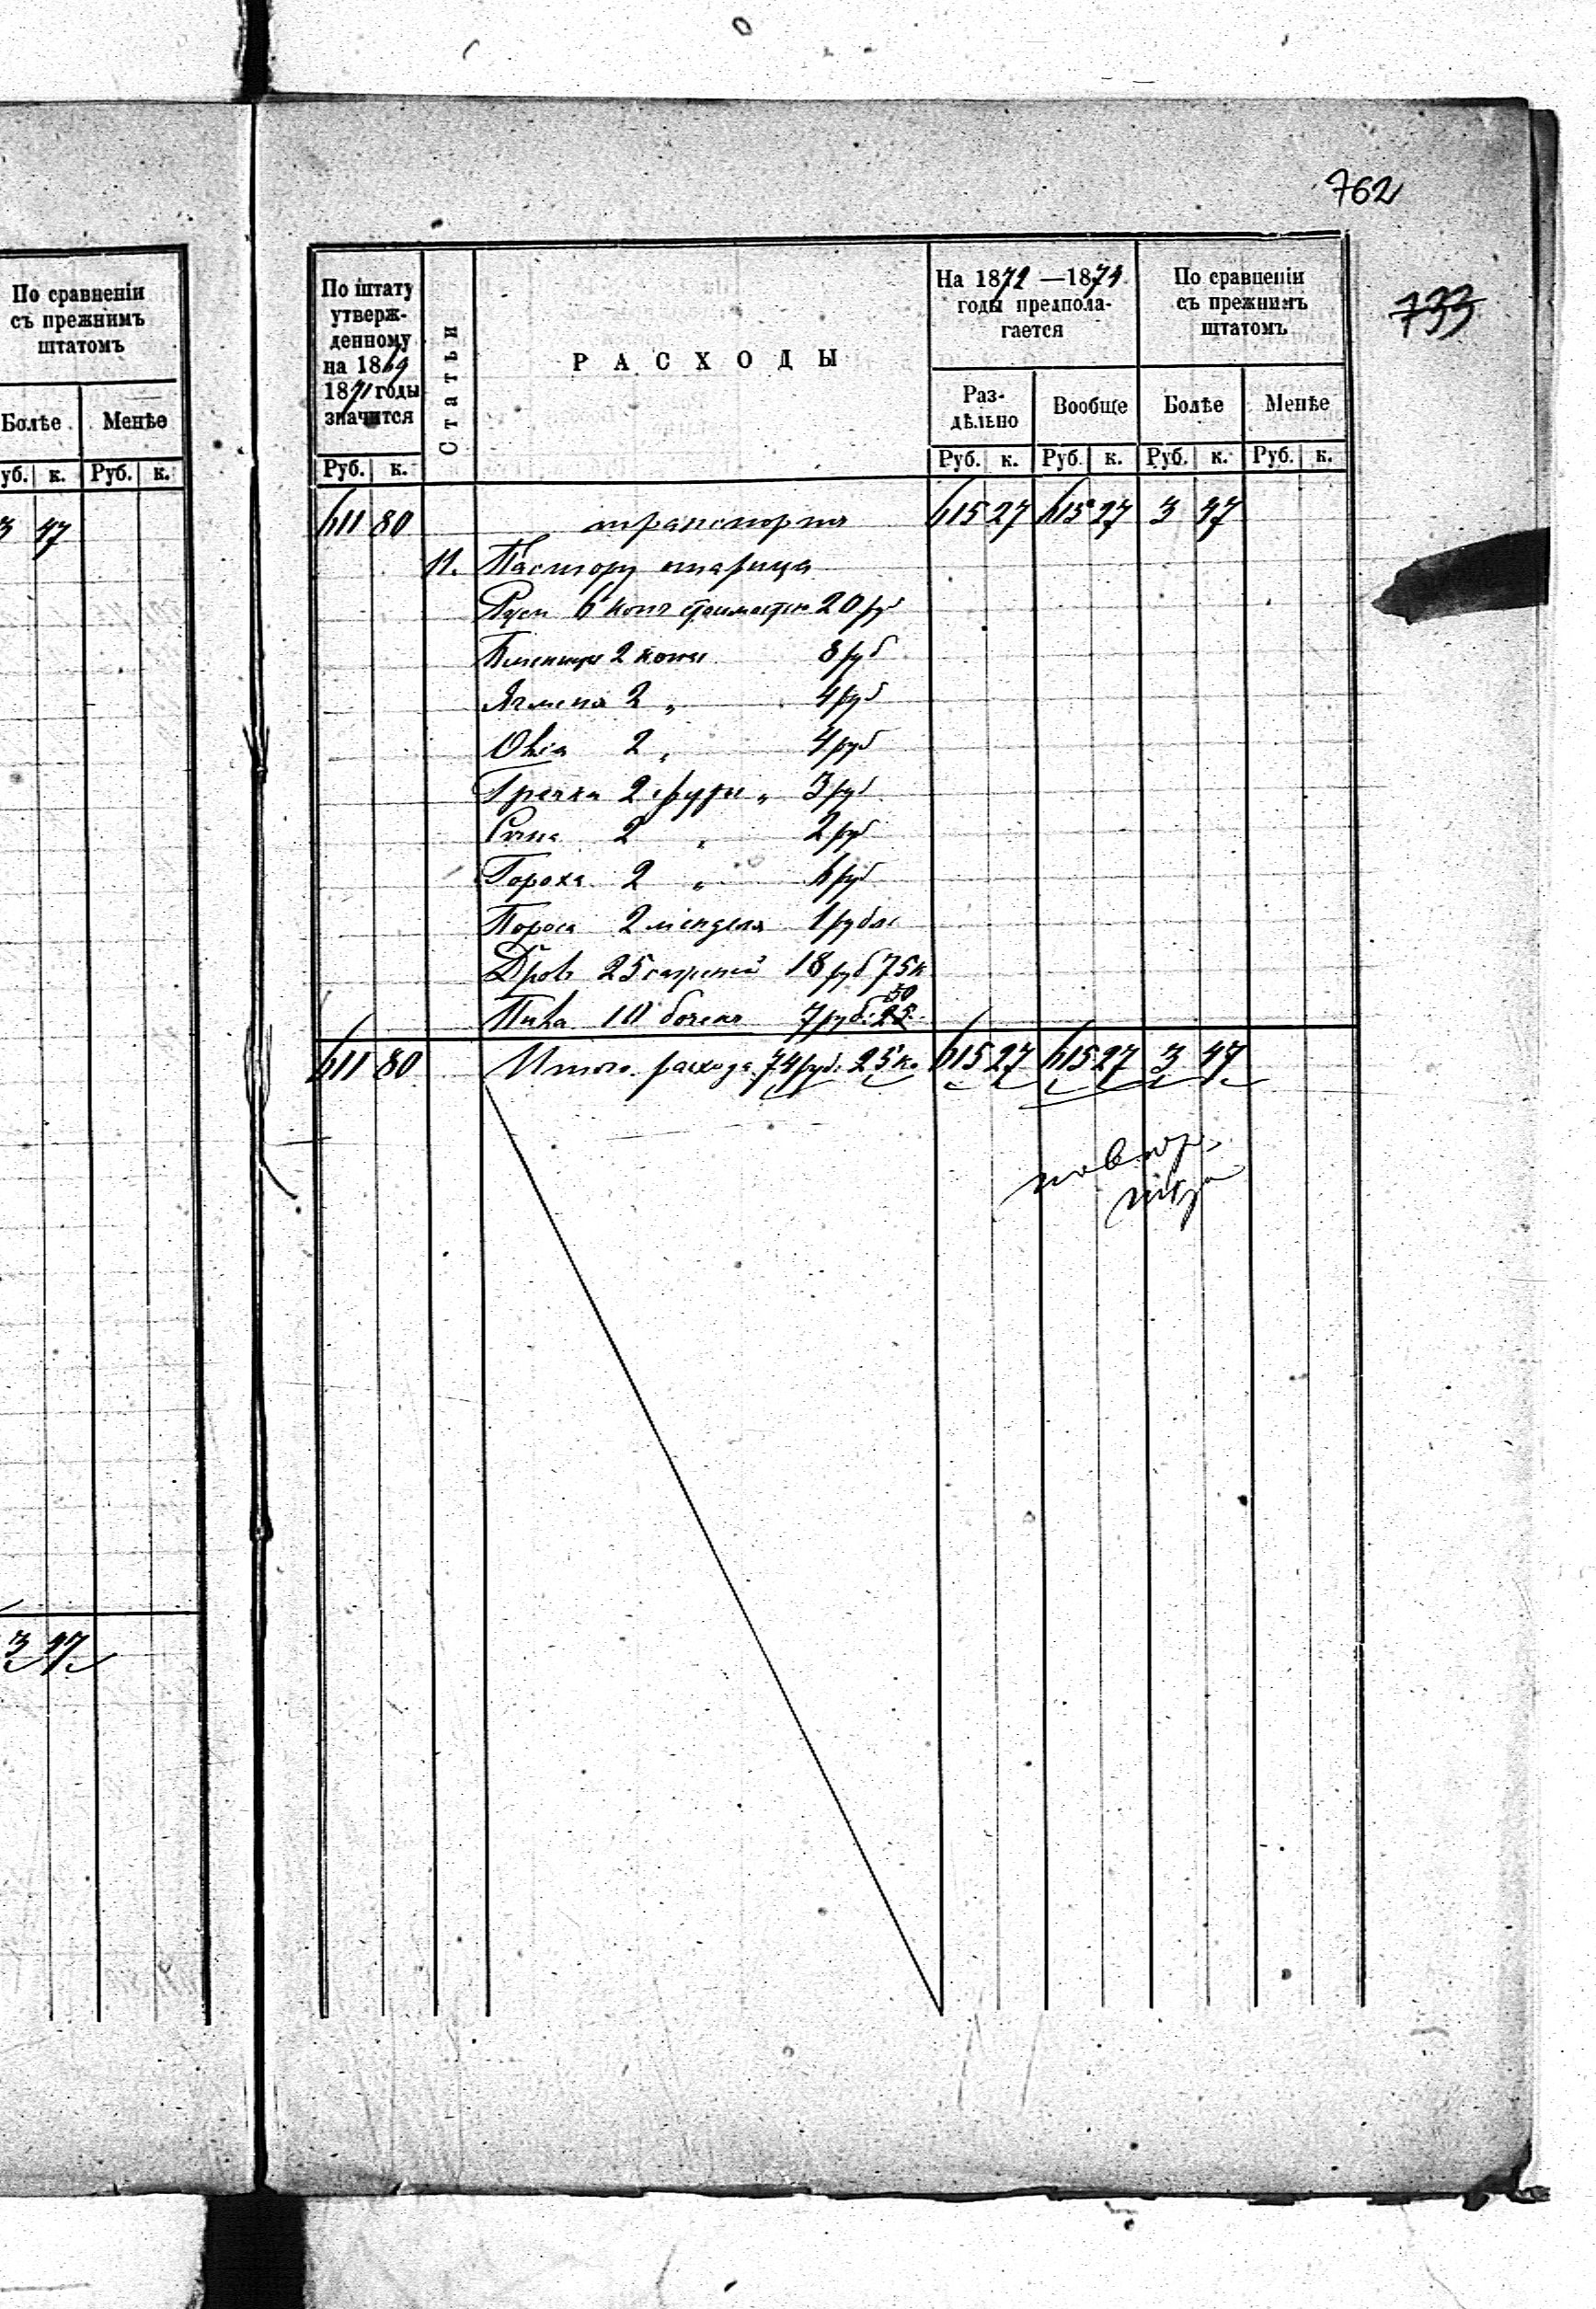 762
733
По сравненіи
съ прежнимъ
штатомъ
Болѣе Менѣе
уб. к. Руб. к.
3 47
3 47
По штату
утверж-
денному
на 1869
1871 годы
значится
Статьи
РАСХОДЫ
На 1872—1874
годы предпола-
гается
По сравненіи
съ прежнимъ
штатомъ
Раз-
дѣльно
Вообще Болѣе Менѣе
Руб. к. Руб. к. Руб. к. Руб. к. Руб. к.
611 80 транспортъ 615 27 615 27 3 47
11. Пастору
6 20 руб
2 копы 8 руб
Ячменя 2 „ 4 руб
Овса 2 „ 4 руб
Гречки 2 „ 3 руб
Сѣна 2 „ 2 руб
Гороха 2 „ 6 руб
2 1 рубль
Дровъ 25 саженей 18 руб 75 к
Пива 10 бочекъ 7 руб. 25 50
611 80 Итого расхода 74 руб. 25 к. 615 27 615 27 3 47